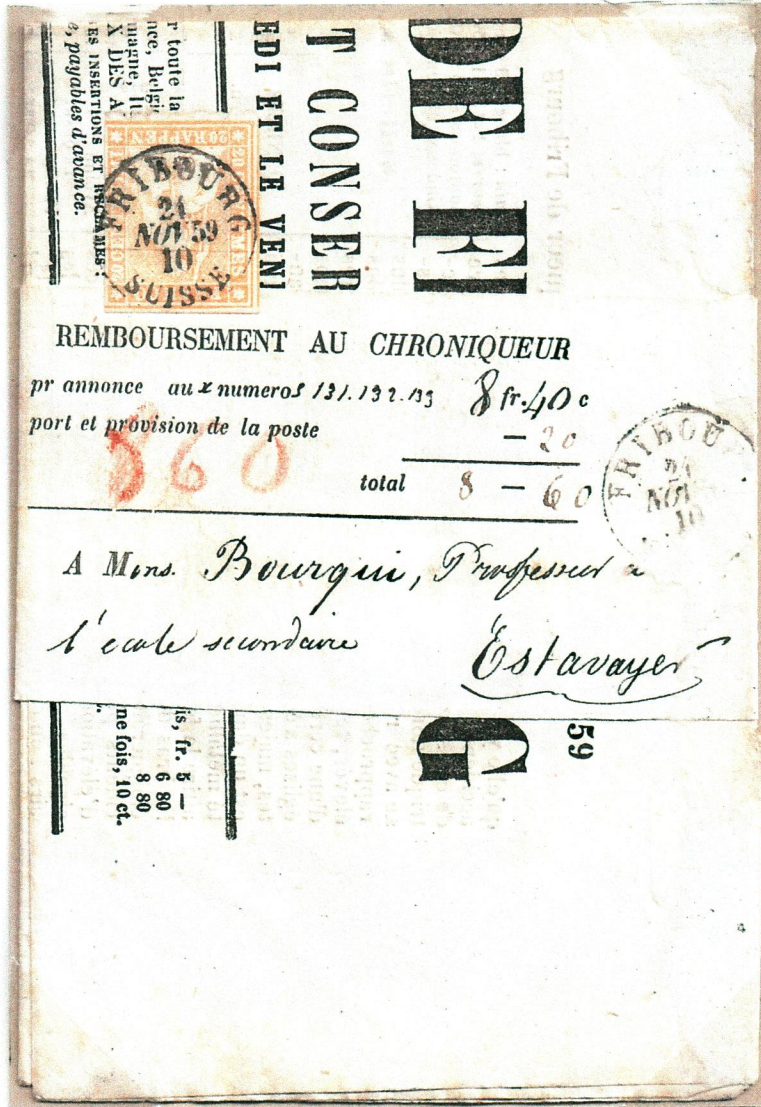 DE FI
G
T CONSER
EDI ET LE VEN
59
r toute la
nce, Belgi
magne, It
X DES A
ES INSERTIONS ET RÉCLAMES:
e, payables d'avance.
is, fr. 5 —
6 80
8 80
ne fois, 10 ct.
20 RAPPEN
FRIBOURG
24
NOV 59
10
SUISSE
REMBOURSEMENT AU CHRONIQUEUR
pr annonce aux numeros 131.132.133 8 fr. 40 c
port et provision de la poste — 20
860
total 8 — 60
FRIBOU
24
NOV
10
A Mons. Bourqui, Professeur a
l'ecole secondaire Estavayer